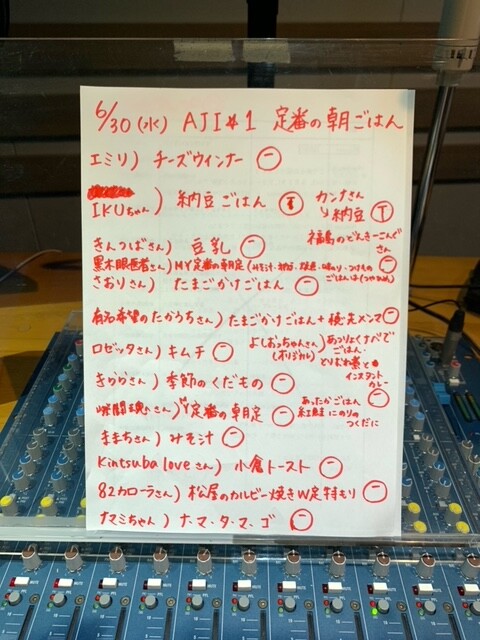 6/30(水) AJI#1 定番の朝ごはん
エミリ) チーズウィンナー 一
IKUちゃん) 納豆ごはん T カンナさん
↳納豆 T
きんつばさん) 豆乳 一 福島のどんきーこんぐさん
黒木眼医者さん) MY定番の朝定(みそ汁・納豆・味のり・つけもの 一
さおりさん) たまごかけごはん 一 ごはんは(つやひめ)
有名希望のたかうちさん) たまごかけごはん+穂先メンマ 一
ロゼッタさん) キムチ 一 よしおっちゃんさん) あつりょくなべで
(オリジナル) ごはん・
とりむね煮と
きららさん) 季節のくだもの 一 インスタント
カレー 一
瞬間魂さん) MY定番の朝定 一 あったかごはん
紅鮭 にのりの
つくだに
ままちさん) みそ汁 一
Kintsuba loveさん) 小倉トースト 一
82カローラさん) 松屋のカルビー焼きW定特もり 一
ナマミちゃん) ナ・マ・タ・マ・ゴ 一
MUTE